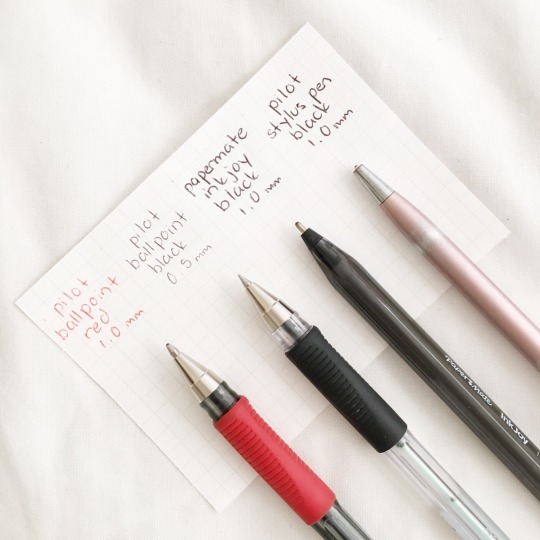 pilot
ballpoint
red
1.0 mm
pilot
ballpoint
black
0.5 mm
papermate
inkjoy
black
1.0 mm
pilot
stylus pen
black
1.0 mm
papermate
INKJOY